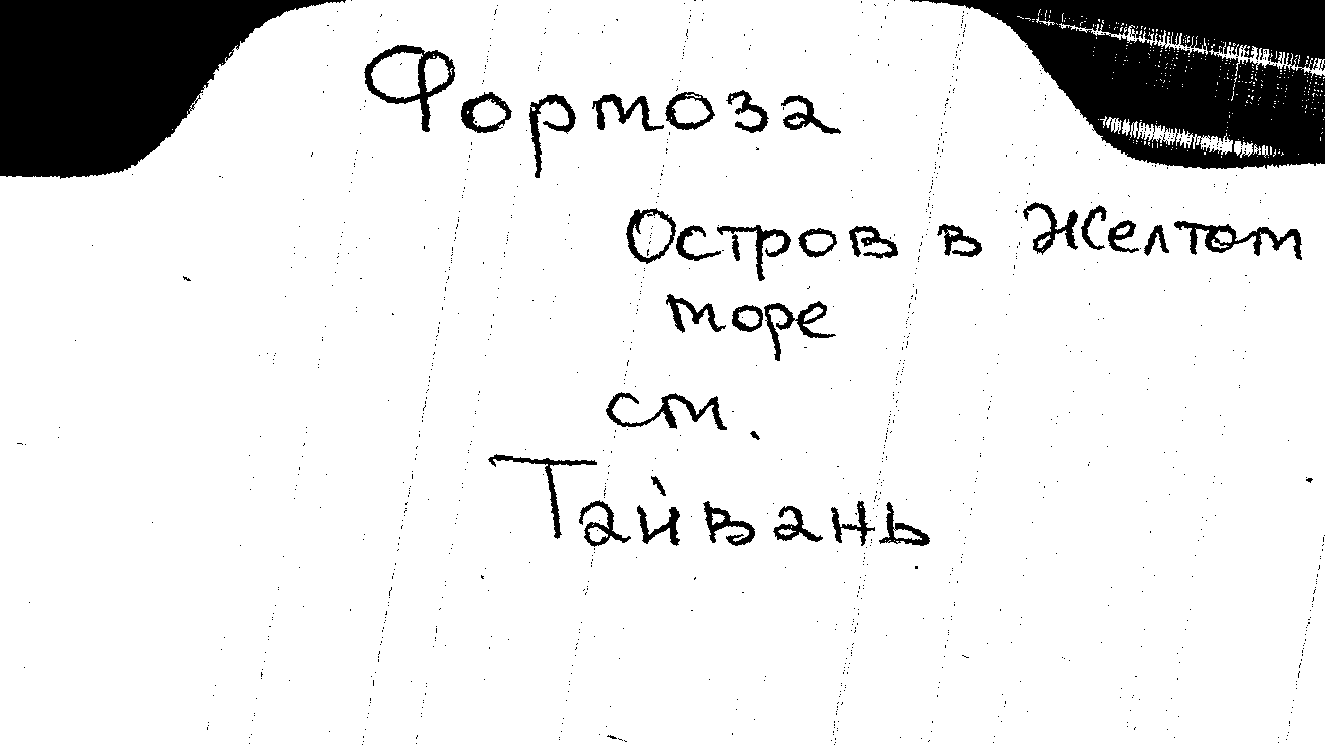 Формоза
Остров в Желтом
море
см.
Тайвань